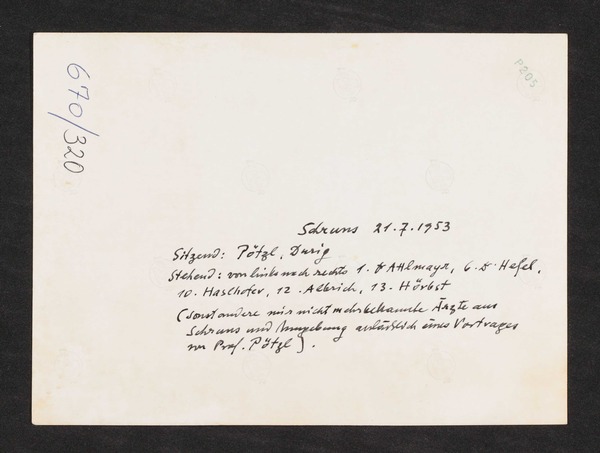 670/320
P205
Schruns 21.7.1953
Sitzend: Pötzl, Durig
Stehend: von links nach rechts 1. Dr Attlmayr, 6. Dr. Hefel,
10. Haslhofer, 12. Albrich, 13. Hörbst
(sonst andere mir nicht mehr bekannte Ärzte aus
Schruns und Umgebung anläßlich eines Vortrages
von Prof. Pötzl).